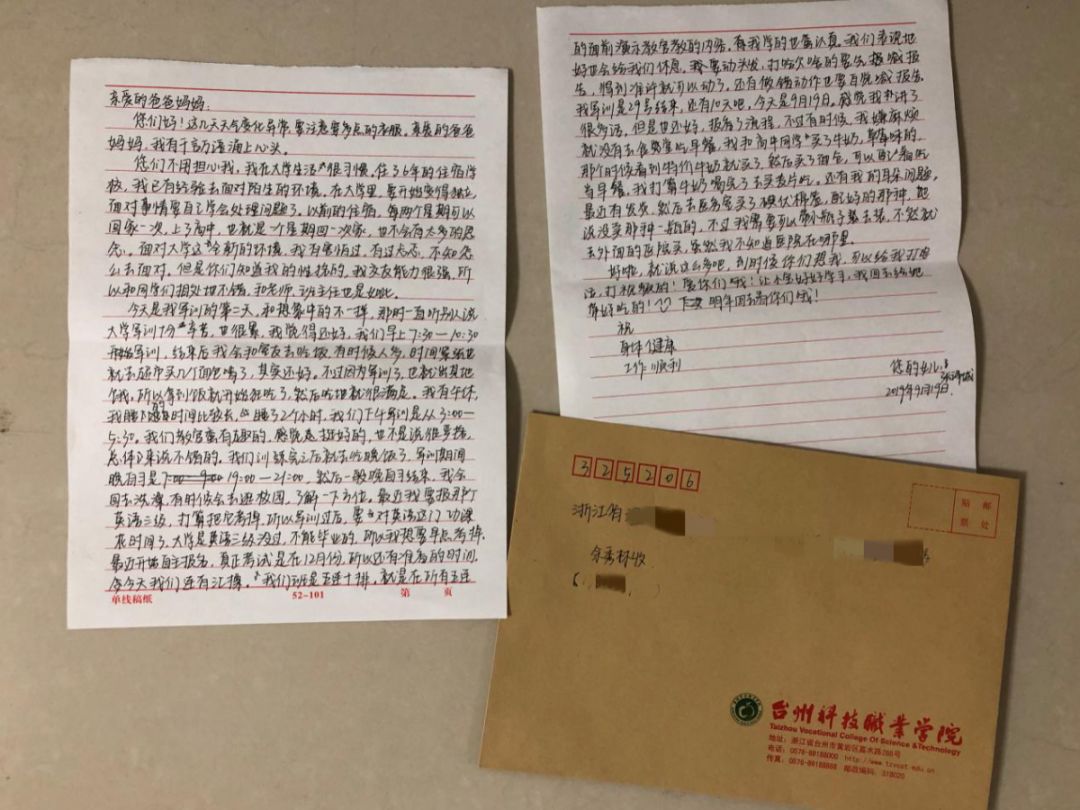 亲爱的爸爸妈妈:
您们好!这几天天气变化异常,要注意要多点的衣服。亲爱的爸爸
妈妈,我有千言万语涌上心头。
您们不用担心我,我在大学生活很习惯。住了6年的住宿学
校,我已有经验去面对陌生的环境。在大学里,要开始变得独立
面对事情要自己学会处理问题了。以前的住宿,每两个星期可以
回家一次,上了高中,也就是一个星期回一次家,也不会有太多的思
念。面对大学这个全新的环境,我有害怕过,有过忐忑,不知怎
么去面对,但是你们知道我的性格的,我交友能力很强,所
以和同学们相处地不错,和老师、班主任也是如此。
今天是我军训的第二天,和想象中的不一样,那时一直听别人说
大学军训十分辛苦,也很累,我觉得还好。我们早上7:30—10:30
开始军训,结束后我会和室友去吃饭,有时候人多,时间紧张也
就去超市买几个面包啃了,其实还好。不过因为军训了,也就出其地
饿,所以拿到饭就开始狂吃了,然后吃地就很满足。我有午休,
我睡的时间比较长,睡了2个小时,我们下午军训是从3:00—
5:30。我们教官蛮有趣的,感觉是挺好的,也不是说很受挫,
总体来说不错的。我们训练完之后就去吃晚饭了。军训期间
晚自习是19:00—21:00,然后一般晚自习结束,我会
回去洗澡,有时候会去逛校园,了解一下方位。最近我要报那个
英语三级,打算把它考掉,所以军训过后,要对英语这门功课
花时间了,大学是英语三级没过,不能毕业的,所以我想要早点考掉,
最近开始自主报名,真正考试是在12月份,所以还有准备的时间。
今天我们还有汇操,我们班是五连十排,就是在所有五连
单线稿纸 52-101 第 页
的面前演示教官教的内容。看我学的也蛮认真。我们表现地
好也会给我们休息。我要动头发,打哈欠啥的要先喊报
告,得到准许就可以动了,还有做错动作也要自觉喊报告。
我军训是29号结束,还有10天吧,今天是9月19日。感觉我扑讲了
很多话,但是也还好,报备了流程,不过有时候,我嫌麻烦
就没有去食堂吃早餐,我和高牛同学买了牛奶,草莓味的,
那个时候看到特价牛奶就买了,然后买了面包,可以
当早餐,我打算牛奶喝完了去买麦片吃。还有我的耳朵问题。
最近有发炎,然后去医务室买了碘伏棉签,配好的那种,她
说没卖那种一瓶的,不过我需要可以拿小瓶子装去装,不然就
去外面的医院买,虽然我不知道医院在哪里。
好啦,就说这么多吧,到时候你们想我,可以给我打电
话,打视频的!爱你们哦!让小宝好好学习,我回去给她
带好吃的!明年回去看你们哦!
祝
身体健康
工作顺利
您的女儿:
2019年9月19日
325206
贴 邮
票 处
浙江省
余秀林收
台州科技職業学院
Taizhou Vocational College Of Science &Technology
地址:浙江省台州市黄岩区嘉木路288号
电话:0576-89188000 http://www.tzvcst.edu.cn
传真:0576-89188888 邮政编码:318020